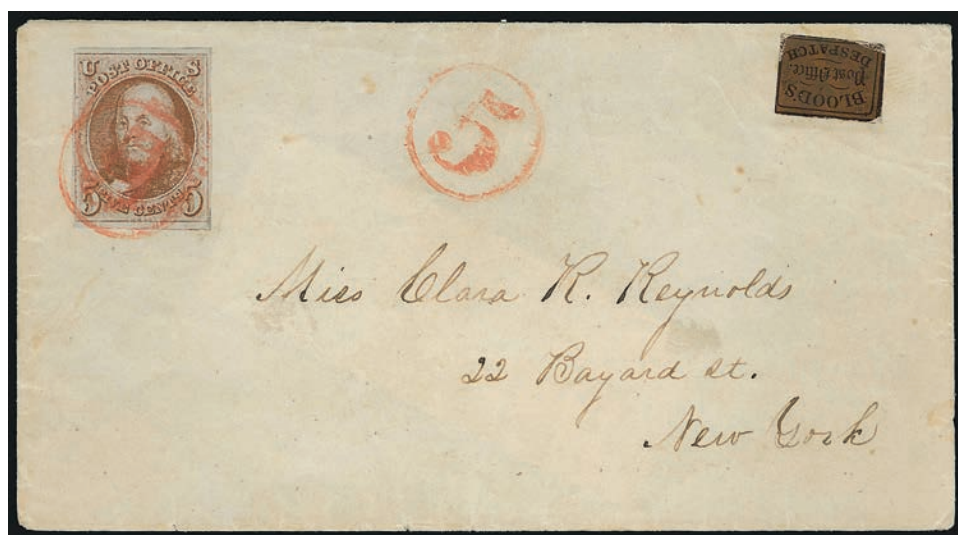 U S
POST OFFICE
FIVE CENTS
5 5
5
BLOOD'S
Post Office.
DESPATCH
Miss Clara K. Reynolds
22 Bayard st.
New York